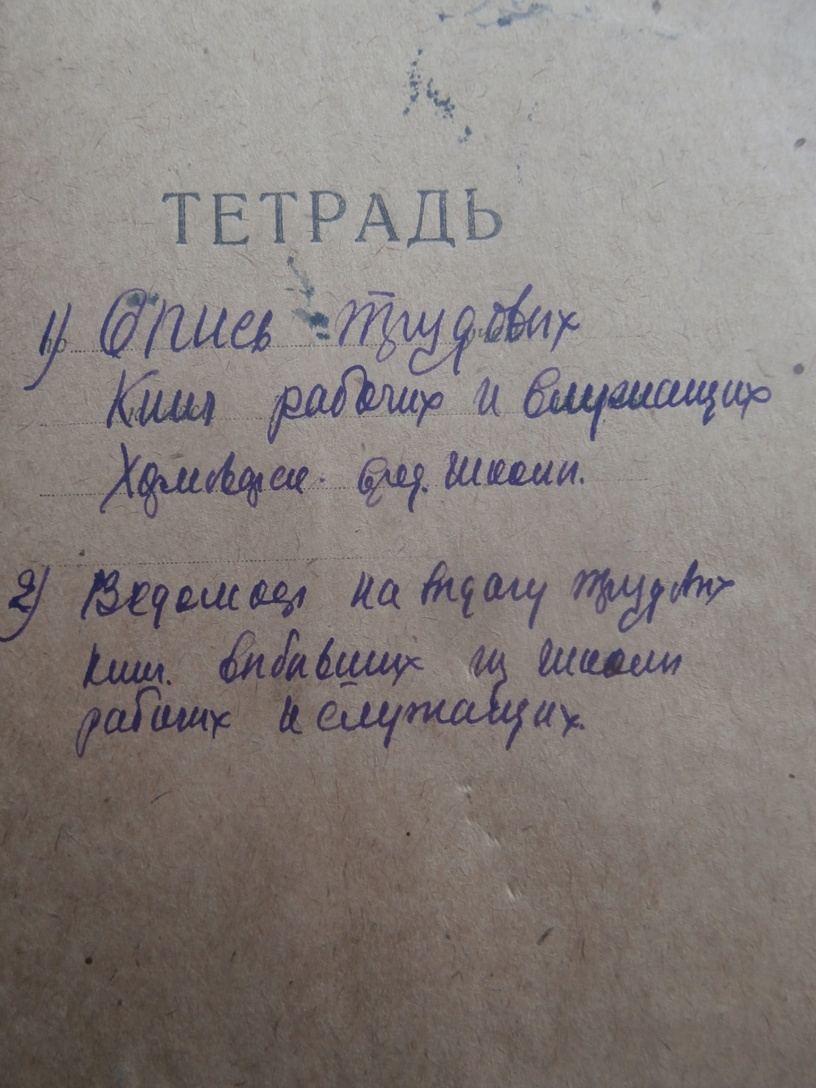 ТЕТРАДЬ
1) Опись трудовых
книг рабочих и служащих
сред. школы.
2) Ведомость на выдачу трудовых
книг. выбывших из школы
рабочих и служащих.